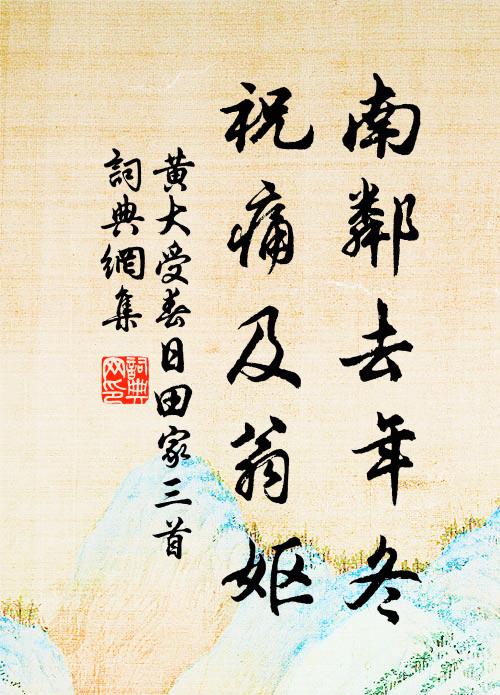 南鄰去年冬
祝痛及翁嫗
黃大受春日田家三首
詞典網集
詞典
网印